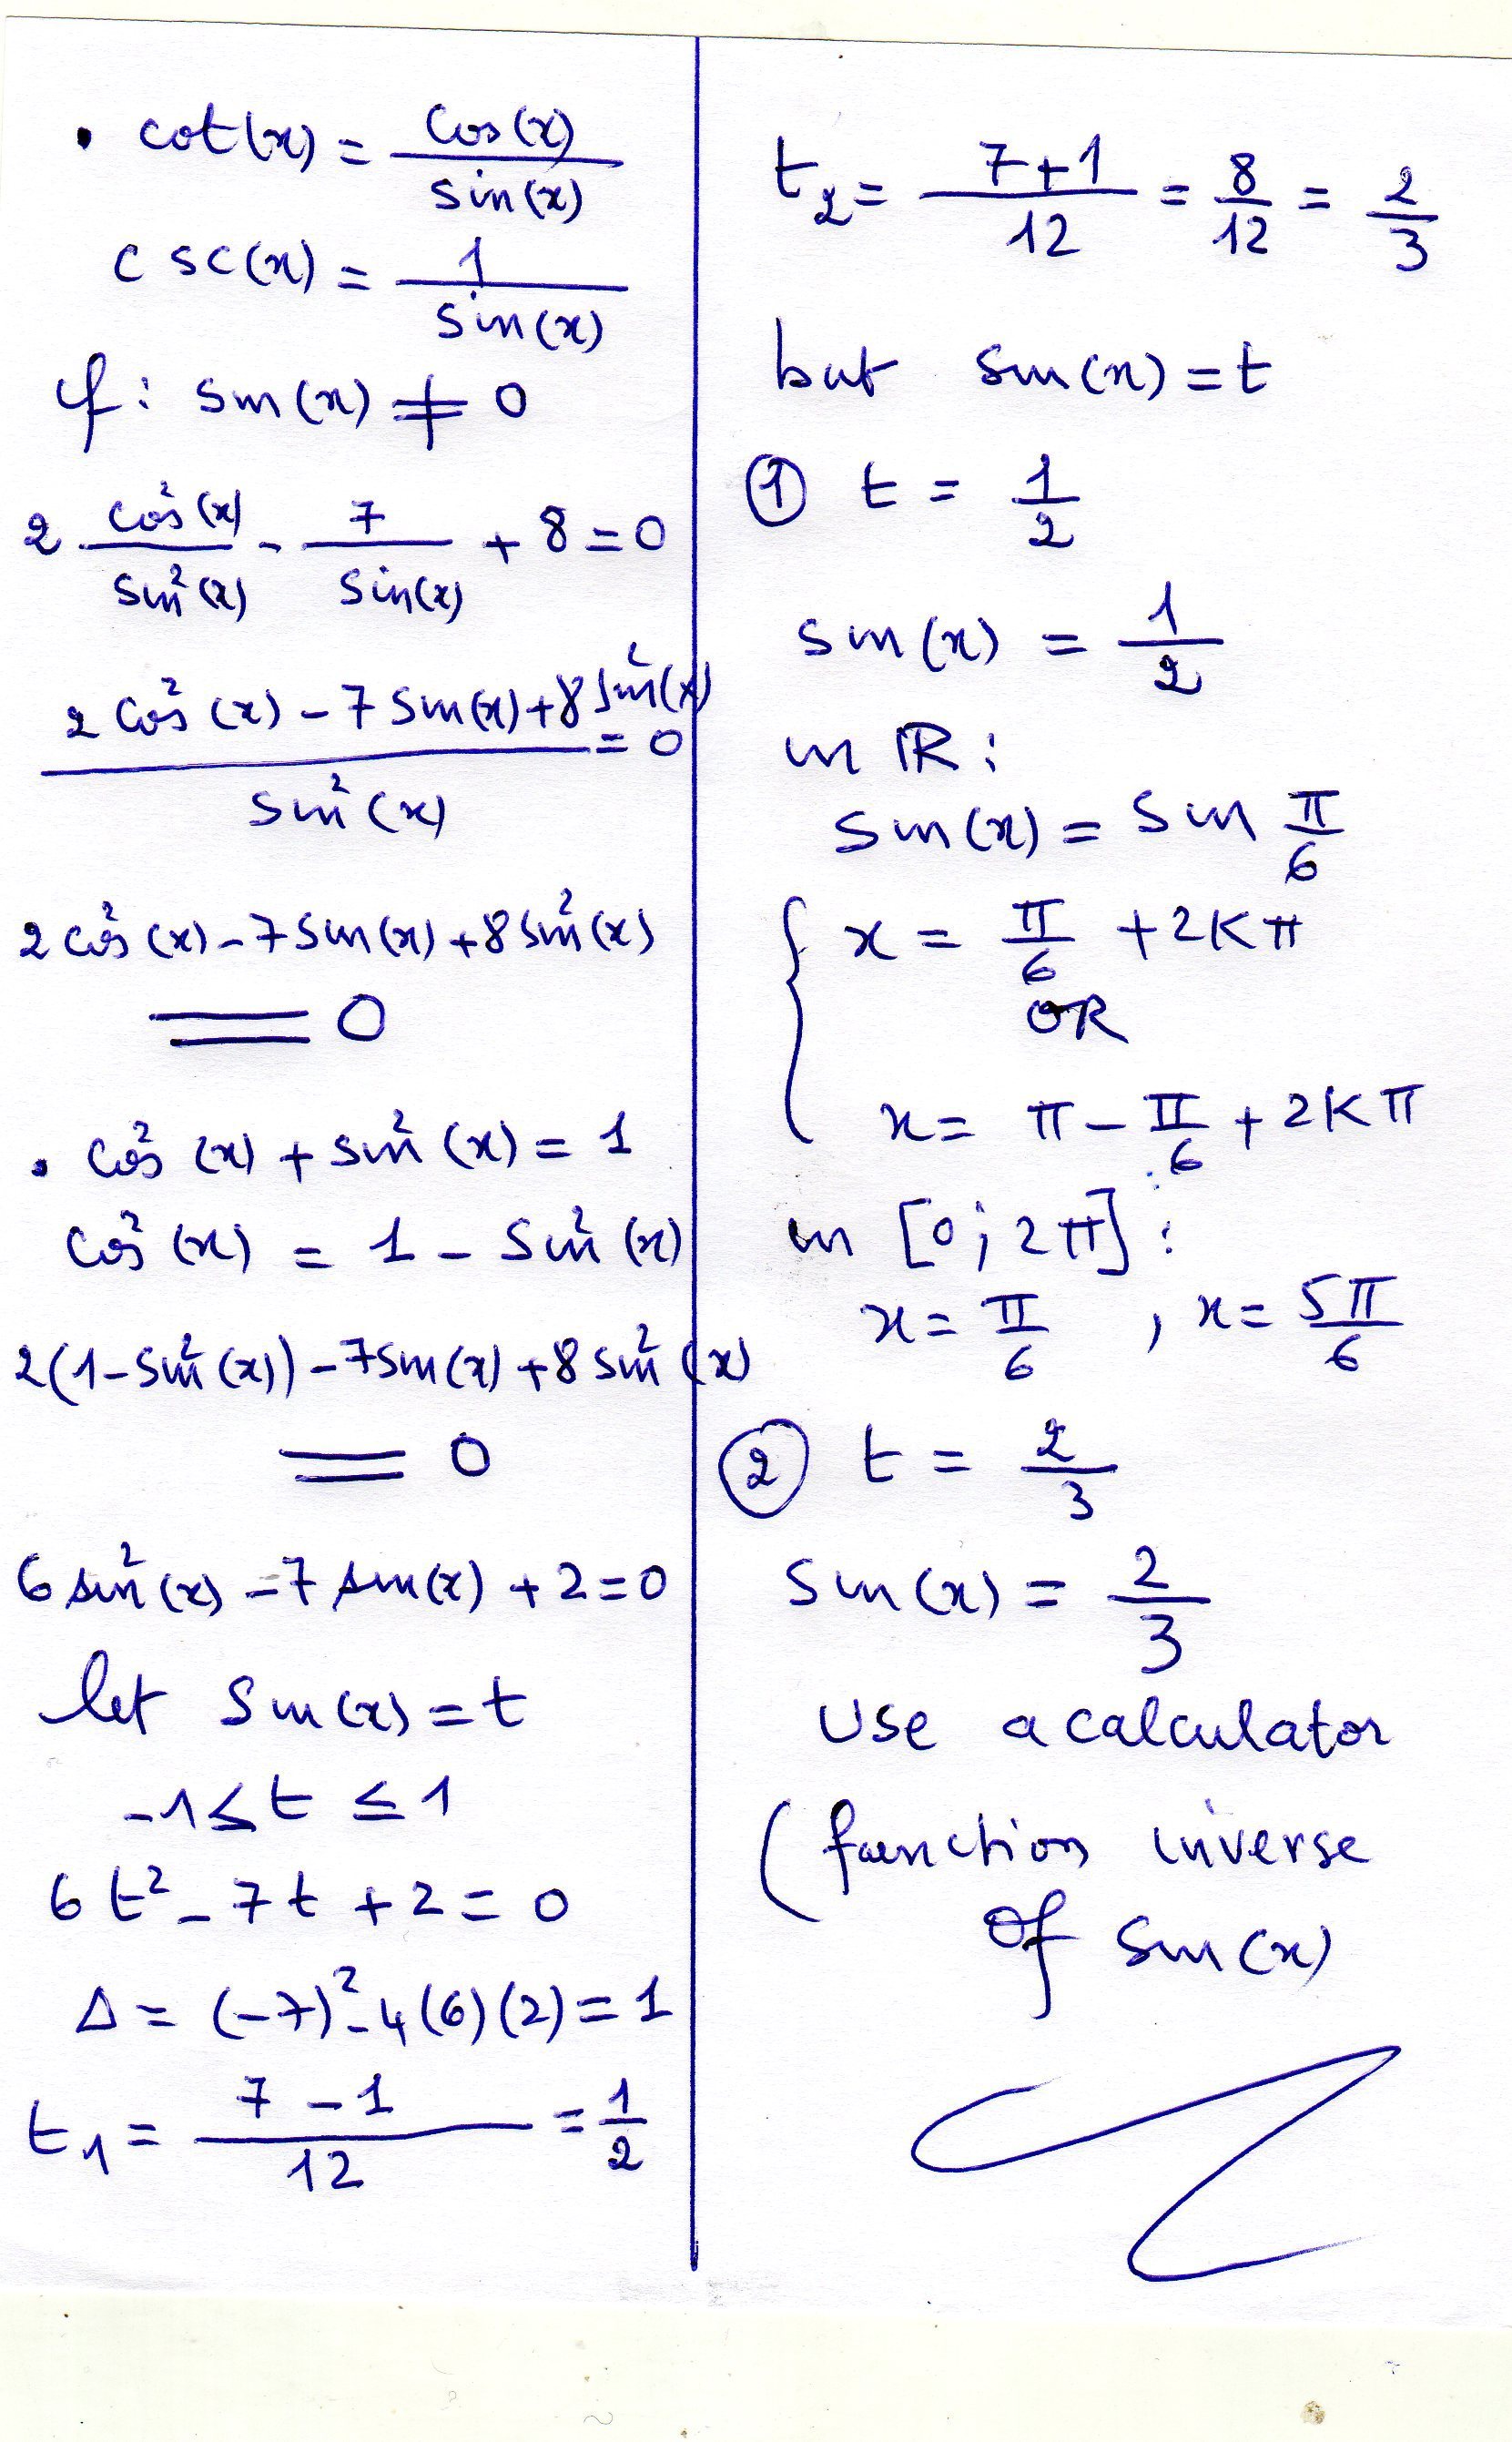 • cot(x) = cos(x) / sin(x)
csc(x) = 1 / sin(x)
if: sin(x) ≠ 0
2 cos²(x) / sin²(x) - 7 / sin(x) + 8 = 0
2 cos²(x) - 7 sin(x) + 8 sin²(x) / sin²(x) = 0
2 cos²(x) - 7 sin(x) + 8 sin²(x)
= 0
• cos²(x) + sin²(x) = 1
cos²(x) = 1 - sin²(x)
2(1 - sin²(x)) - 7 sin(x) + 8 sin²(x)
= 0
6 sin²(x) - 7 sin(x) + 2 = 0
let sin(x) = t
-1 ≤ t ≤ 1
6t² - 7t + 2 = 0
Δ = (-7)² - 4(6)(2) = 1
t₁ = 7 - 1 / 12 = 1/2
t₂ = 7 + 1 / 12 = 8/12 = 2/3
but sin(x) = t
① t = 1/2
sin(x) = 1/2
in ℝ:
sin(x) = sin π/6
{ x = π/6 + 2Kπ
OR
x = π - π/6 + 2Kπ
in [0; 2π]:
x = π/6 , x = 5π/6
② t = 2/3
sin(x) = 2/3
Use a calculator
(function inverse
of sin(x)